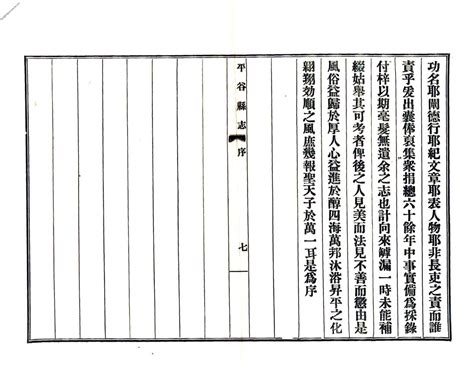 功名耶闡德行耶紀文章耶表人物耶非長吏之責而誰
責乎爰出囊俸裒集衆捐總六十餘年中事實備爲採錄
付梓以期毫髮無遺余之志也計向來罅漏一時未能補
綴姑舉其可考者俾後之人見美而法見不善而懲由是
風俗益歸於厚人心益進於醇四海萬邦沐浴昇平之化
翽翽効順之風庶幾報聖天子於萬一耳是爲序
平谷縣志 序 七